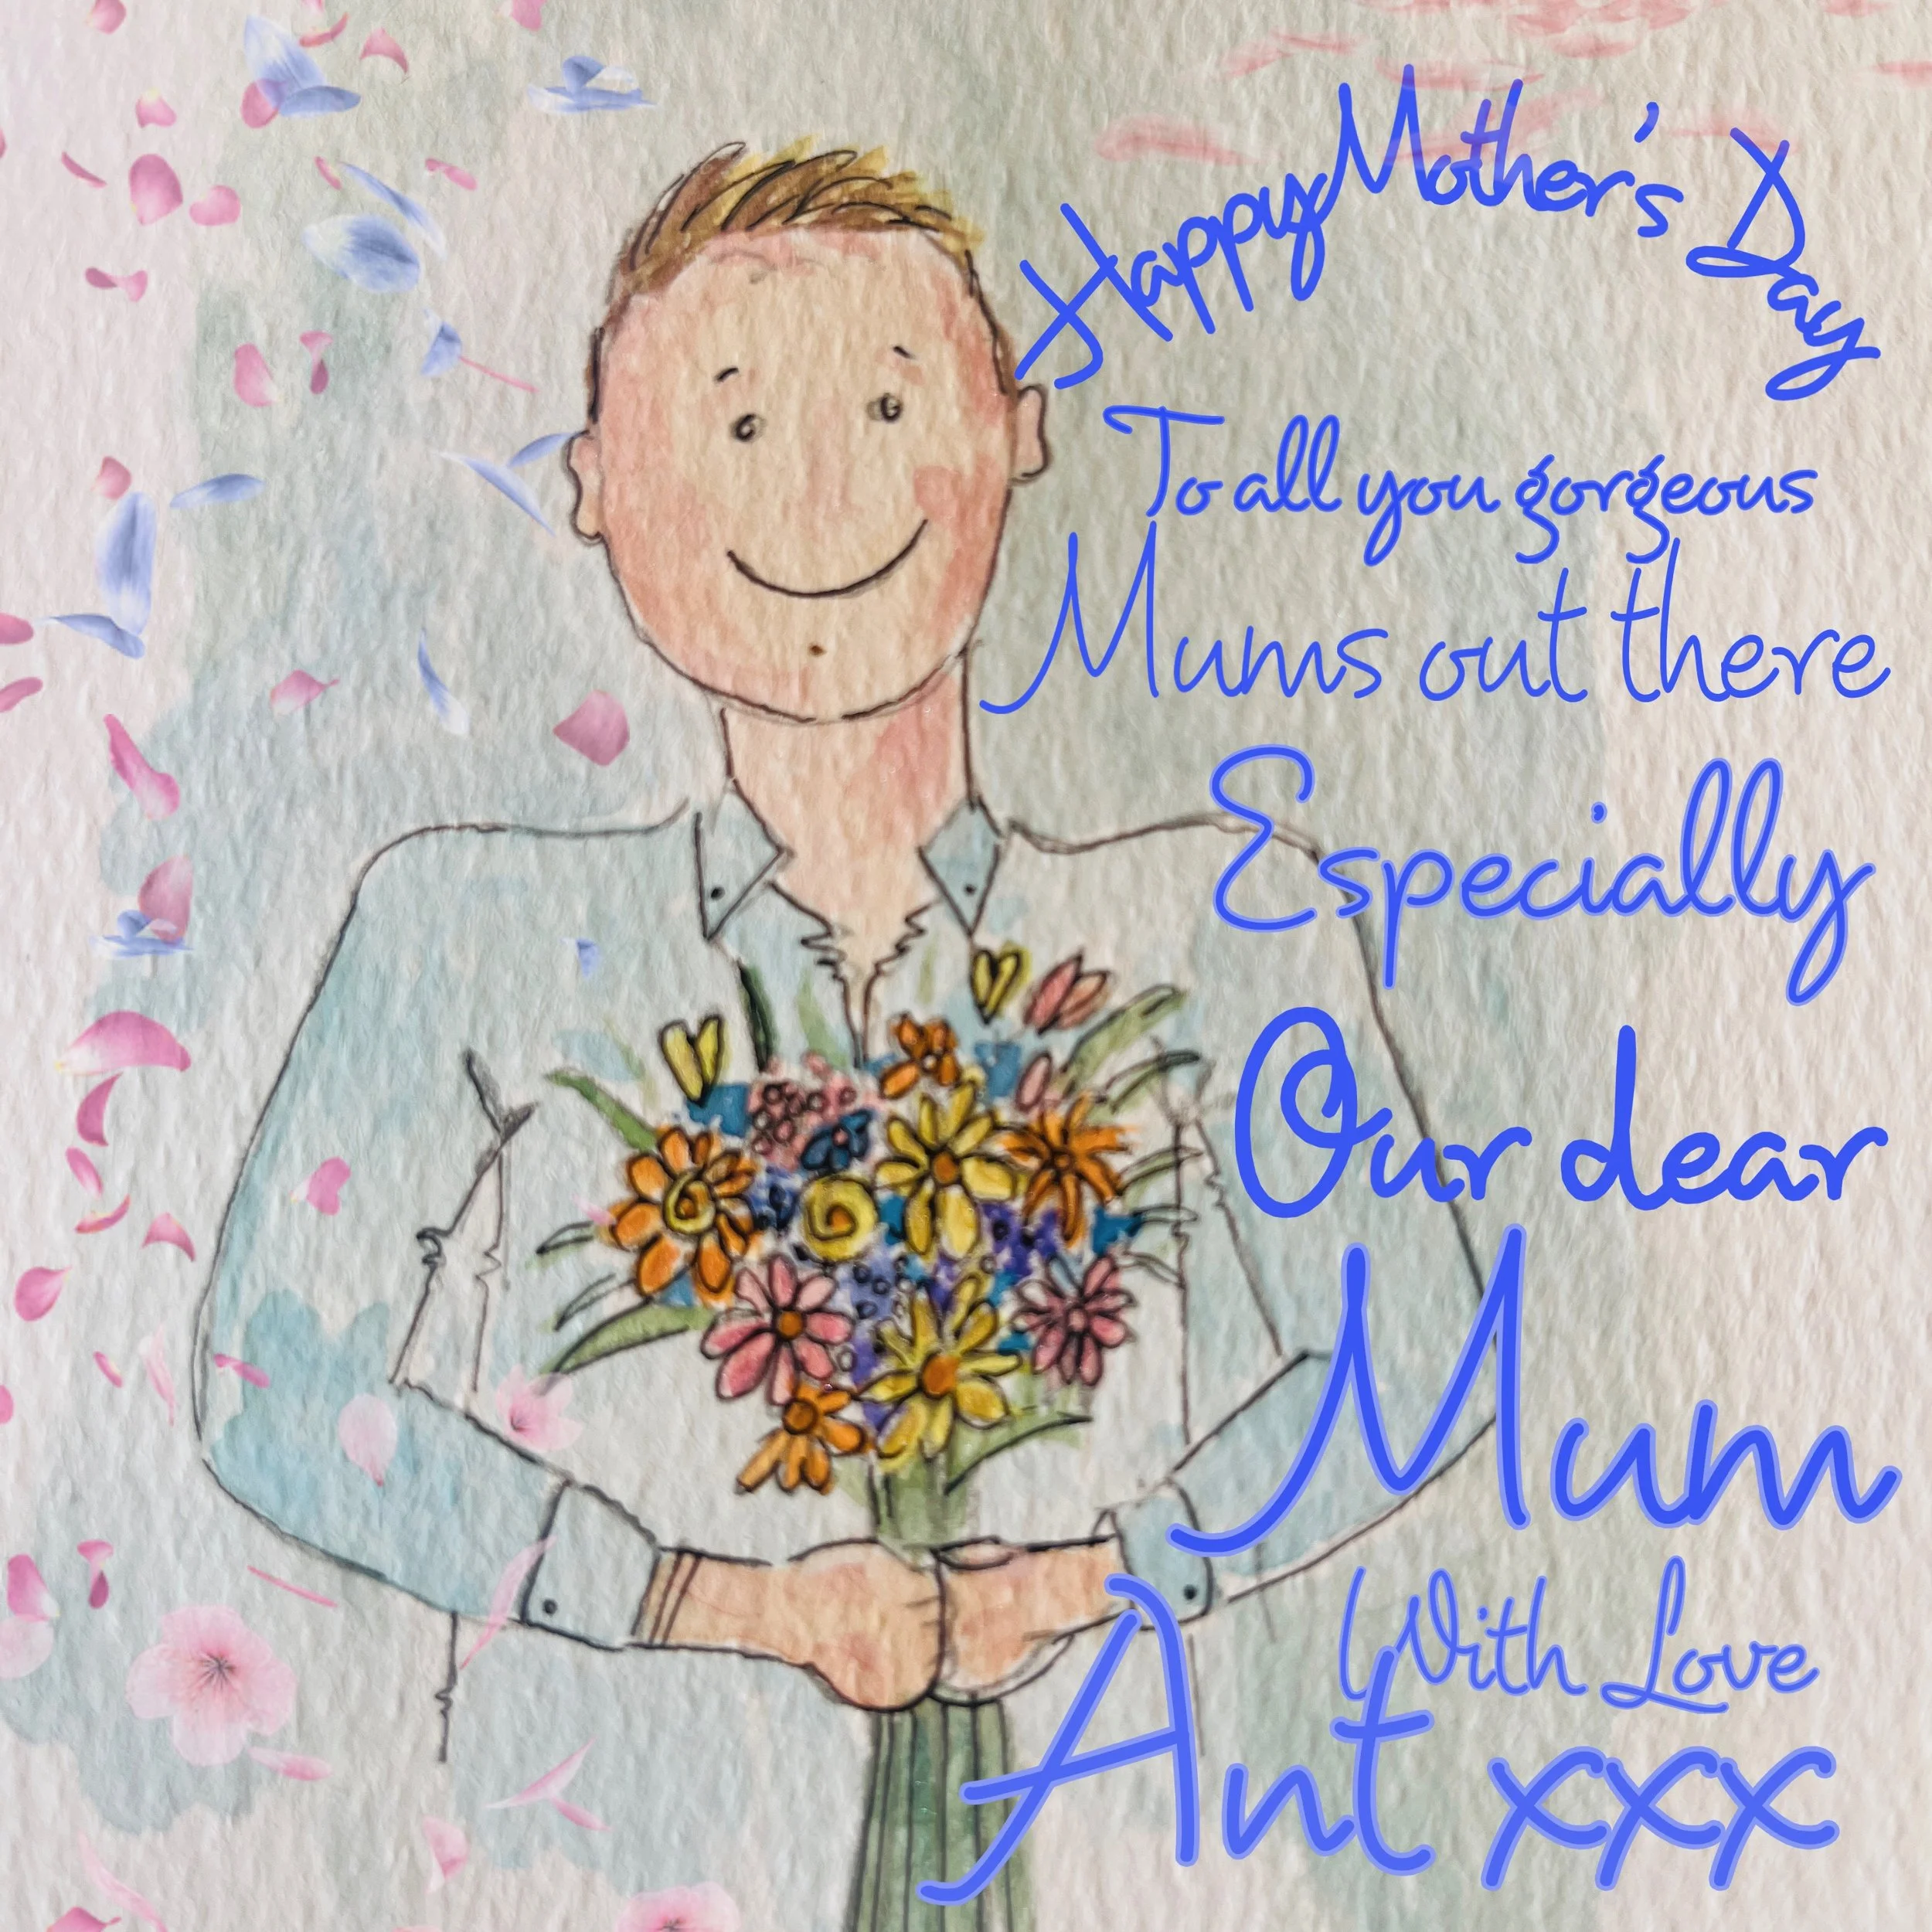 Happy Mother's Day
To all you gorgeous
Mums out there
Especially
Our dear
Mum
With Love
Ant xxx